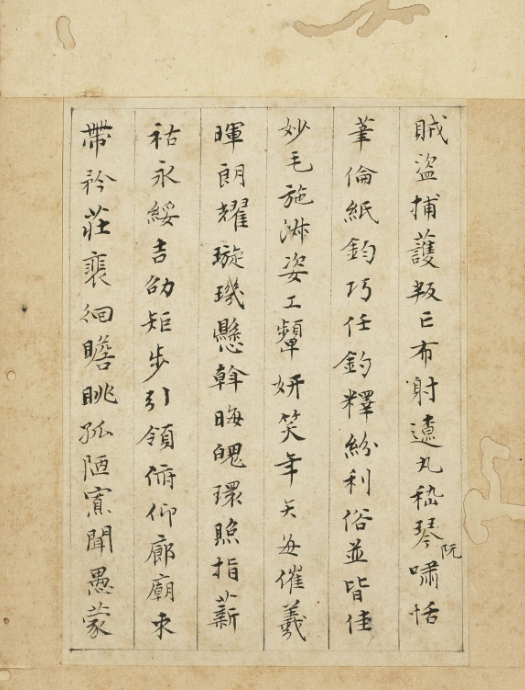 賊盜捕護叛亡布射遼丸嵇琴阮嘯恬
筆倫紙鈞巧任釣釋紛利俗並皆佳
妙毛施淑姿工顰妍笑年矢每催羲
暉朗耀璇璣懸斡晦魄環照指薪
祜永綏吉劭矩步引領俯仰廊廟束
帶矜莊裵徊瞻眺孤陋寡聞愚蒙